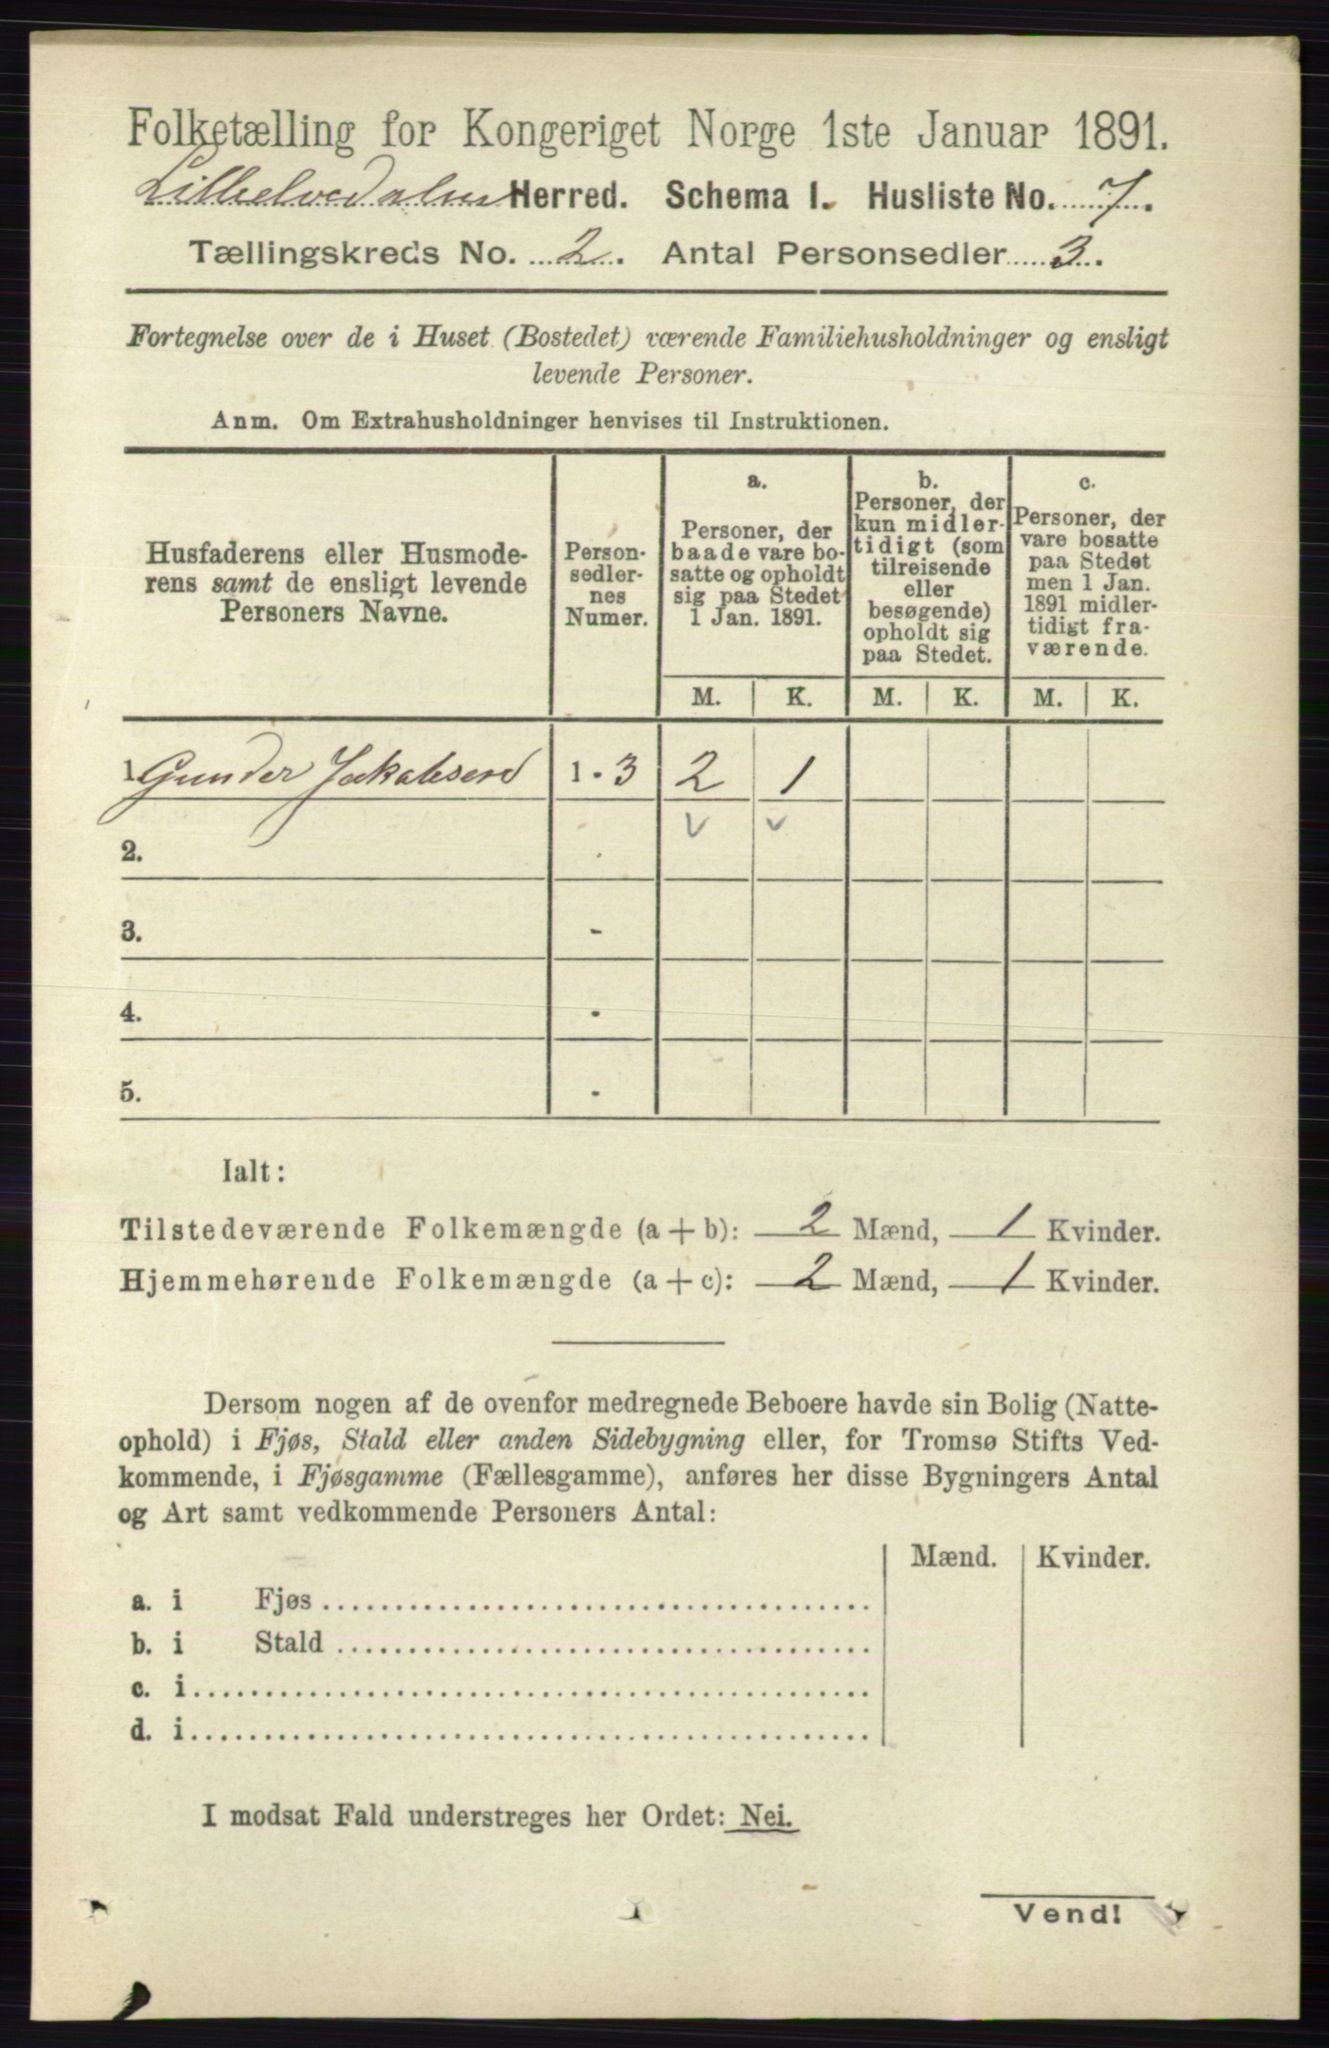 Folketælling for Kongeriget Norge 1ste Januar 1891.
Lilleelvedalens Herred. Schema I. Husliste No. 7.
Tællingskreds No. 2. Antal Personsedler 3.
Fortegnelse over de i Huset (Bostedet) værende Familiehusholdninger og ensligt
levende Personer.
Anm. Om Extrahusholdninger henvises til Instruktionen.
Husfaderens eller Husmode-
rens samt de ensligt levende
Personers Navne.
Person-
sedler-
nes
Numer.
a.
Personer, der
baade vare bo-
satte og opholdt
sig paa Stedet
1 Jan. 1891.
b.
Personer, der
kun midler-
tidigt (som
tilreisende
eller
besøgende)
opholdt sig
paa Stedet.
c.
Personer, der
vare bosatte
paa Stedet
men 1 Jan.
1891 midler-
tidigt fra-
værende.
M. K. M. K. M. K.
1. Gunder Jakobsen 1 - 3 2 1
2.
3. -
4. -
5. -
Ialt:
Tilstedeværende Folkemængde (a + b): 2 Mænd, 1 Kvinder.
Hjemmehørende Folkemængde (a + c): 2 Mænd, 1 Kvinder.
Dersom nogen af de ovenfor medregnede Beboere havde sin Bolig (Natte-
ophold) i Fjøs, Stald eller anden Sidebygning eller, for Tromsø Stifts Ved-
kommende, i Fjøsgamme (Fællesgamme), anføres her disse Bygningers Antal
og Art samt vedkommende Personers Antal:
Mænd. Kvinder.
a. i Fjøs
b. i Stald
c. i
d. i
I modsat Fald understreges her Ordet: Nei.
Vend!